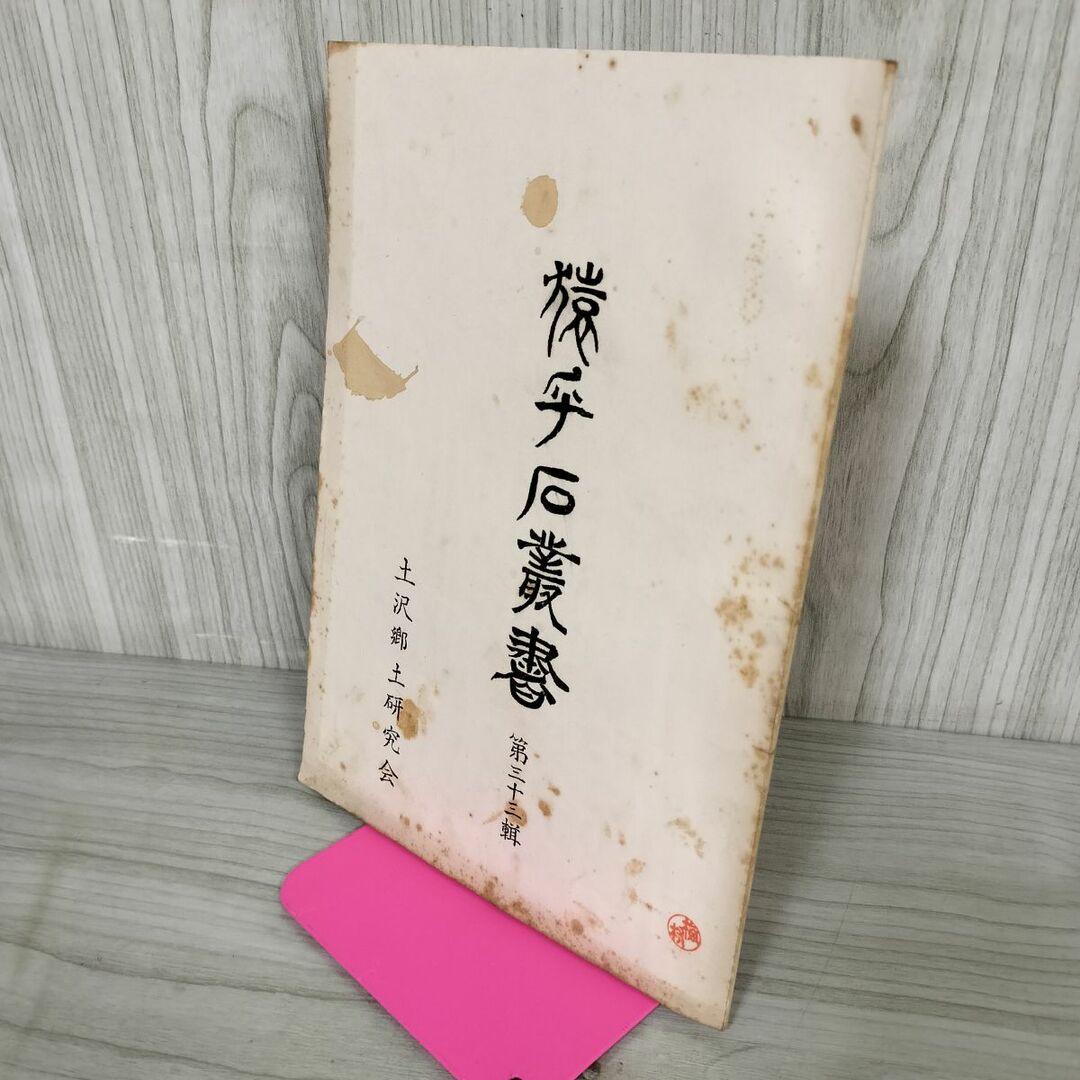 猿乎石叢書 第三十三輯
土沢郷土研究会